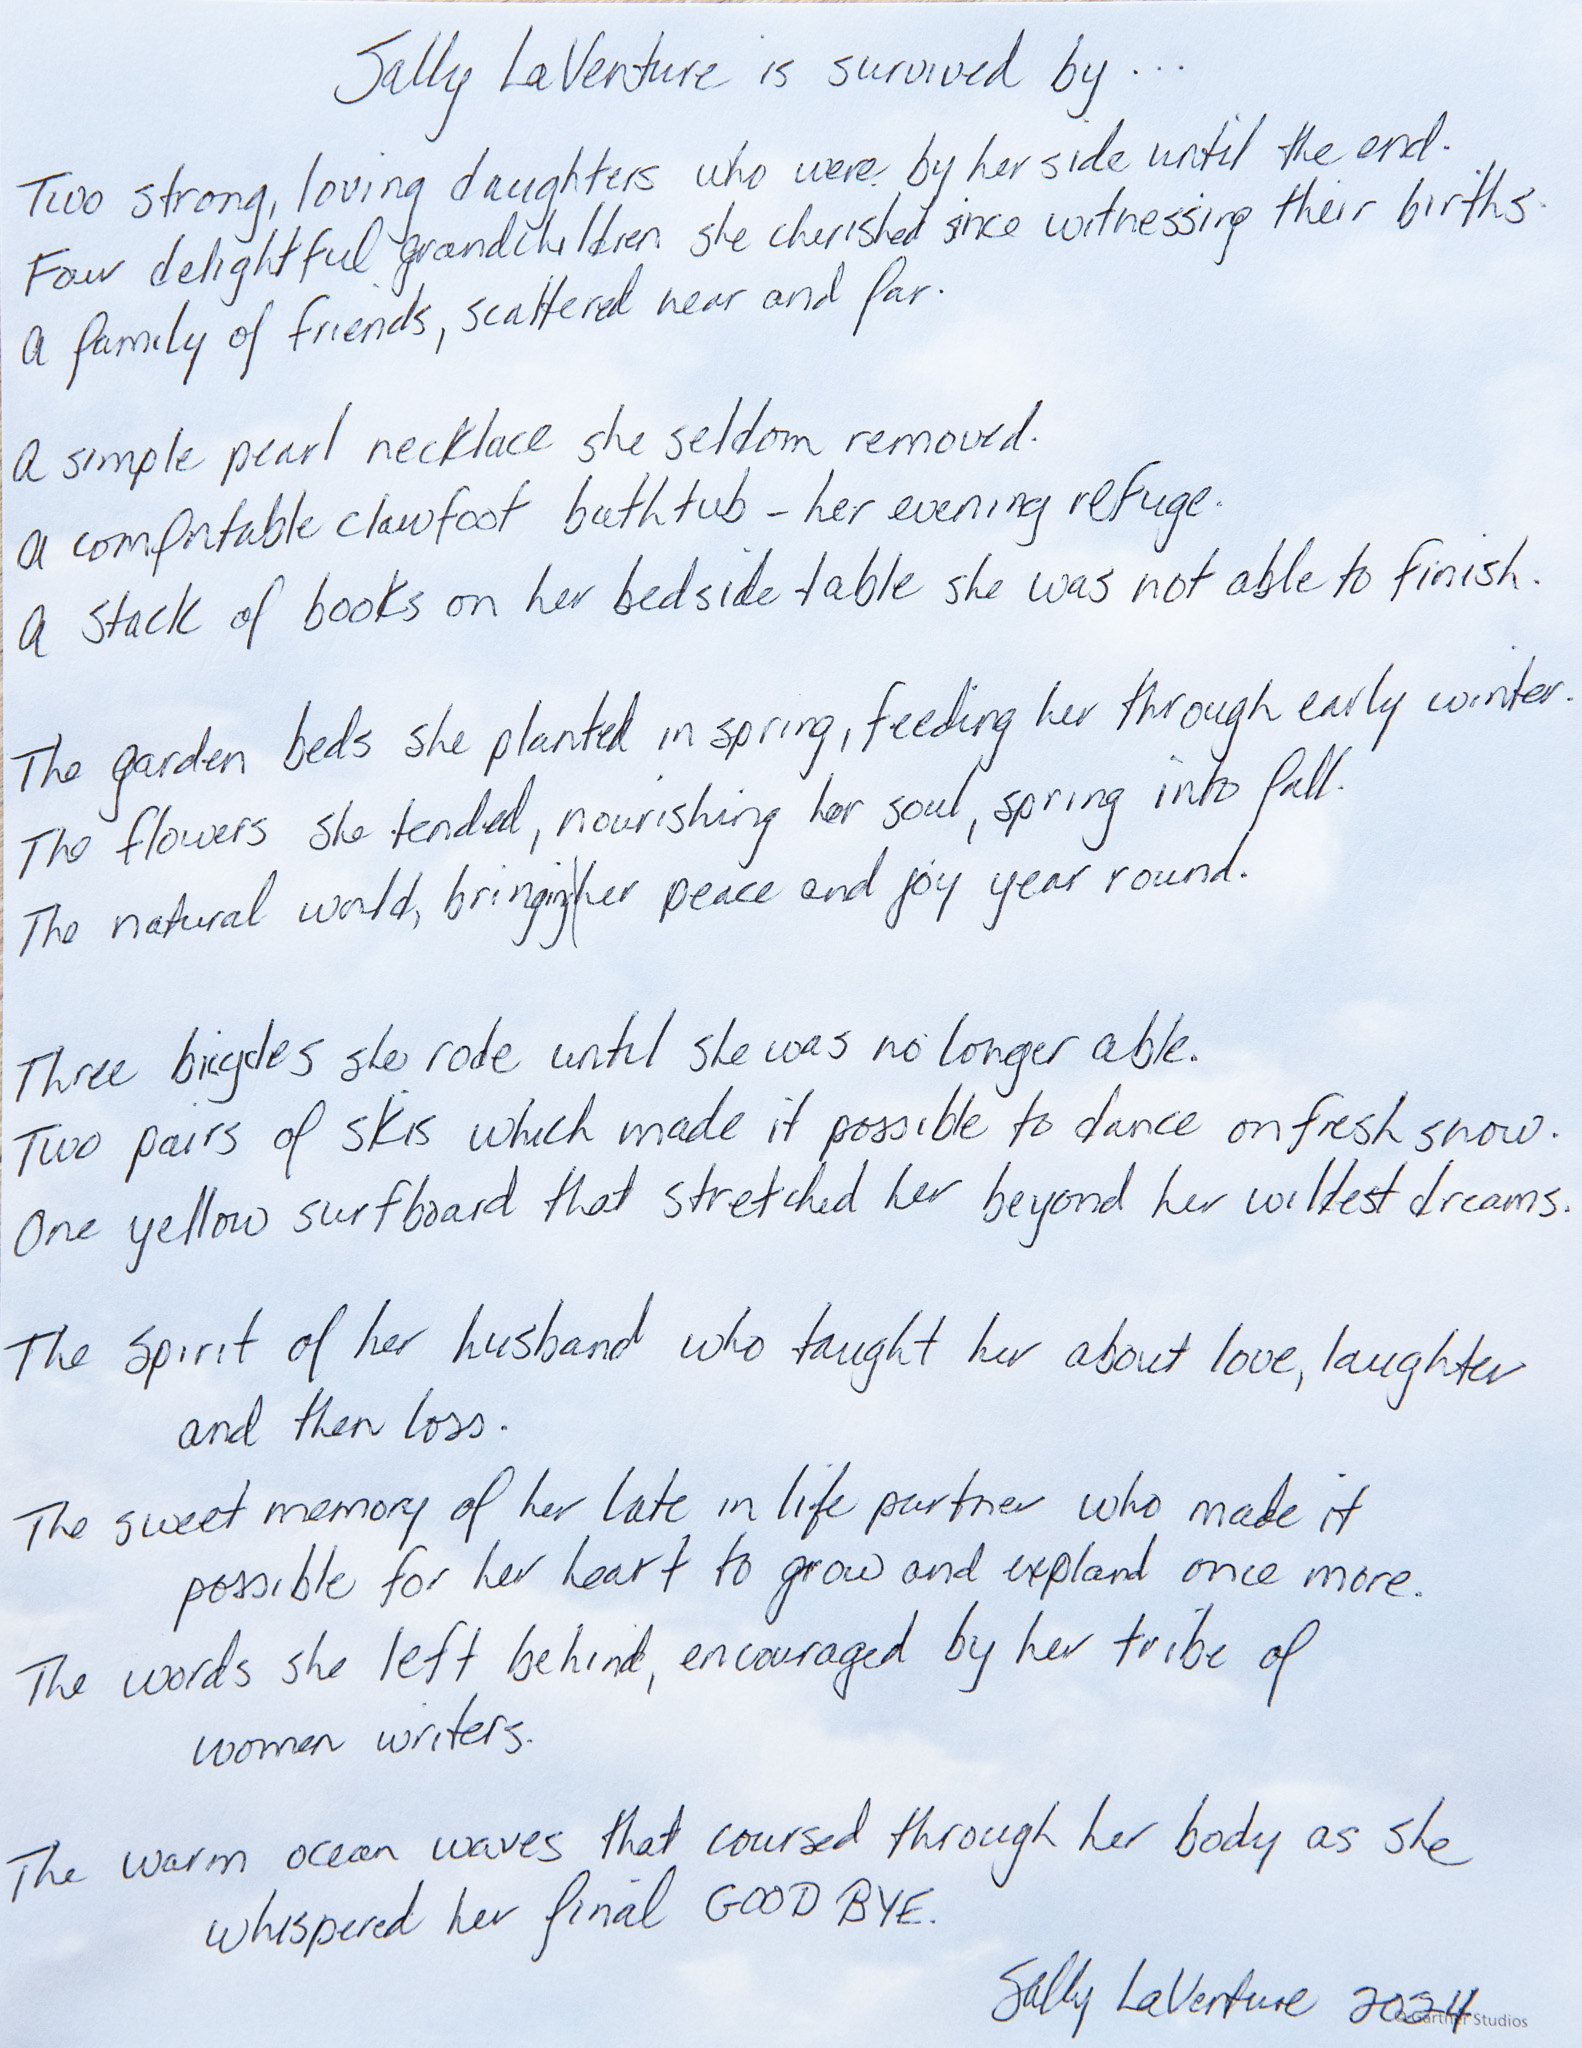 Sally LaVenture is survived by ...
Two strong, loving daughters who were by her side until the end.
Four delightful grandchildren she cherished since witnessing their births.
A family of friends, scattered near and far.
A simple pearl necklace she seldom removed.
A comfortable clawfoot bathtub - her evening refuge.
A stack of books on her bedside table she was not able to finish.
The garden beds she planted in spring, feeding her through early winter.
The flowers she tended, nourishing her soul, spring into fall.
The natural world, bringing her peace and joy year round.
Three bicycles she rode until she was no longer able.
Two pairs of skis which made it possible to dance on fresh snow.
One yellow surfboard that stretched her beyond her wildest dreams.
The spirit of her husband who taught her about love, laughter
and then loss.
The sweet memory of her late in life partner who made it
possible for her heart to grow and expland once more.
The words she left behind, encouraged by her tribe of
women writers.
The warm ocean waves that coursed through her body as she
whispered her final GOOD BYE.
Sally LaVenture 2024
© Gartner Studios